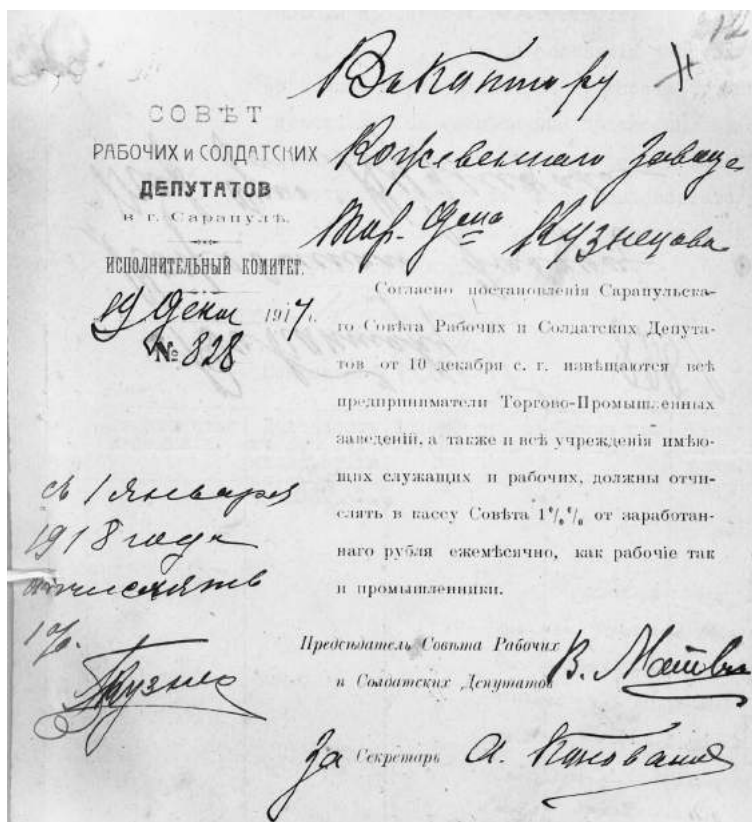 СОВѢТ
РАБОЧИХ и СОЛДАТСКИХ
ДЕПУТАТОВ
в г. Сарапулѣ.
ИСПОЛНИТЕЛЬНЫЙ КОМИТЕТ.
19 декаб 1917 г.
№ 828
В Контору
Кожевенного завода
Тор. дома Кузнецова
Согласно постановленія Сарапульска-
го Совѣта Рабочих и Солдатских Депута-
тов от 10 декабря с. г. извѣщаются всѣ
предприниматели Торгово-Промышленных
заведеній, а также и всѣ учрежденія имѣю-
щих служащих и рабочих, должны отчи-
слять в кассу Совѣта 1%% от заработан-
наго рубля ежемѣсячно, как рабочіе так
и промышленники.
Предсѣдатель Совѣта Рабочих
и Солдатских Депутатов В.
За Секретарь А.
съ 1 января
1918 года
отчислять
1%.